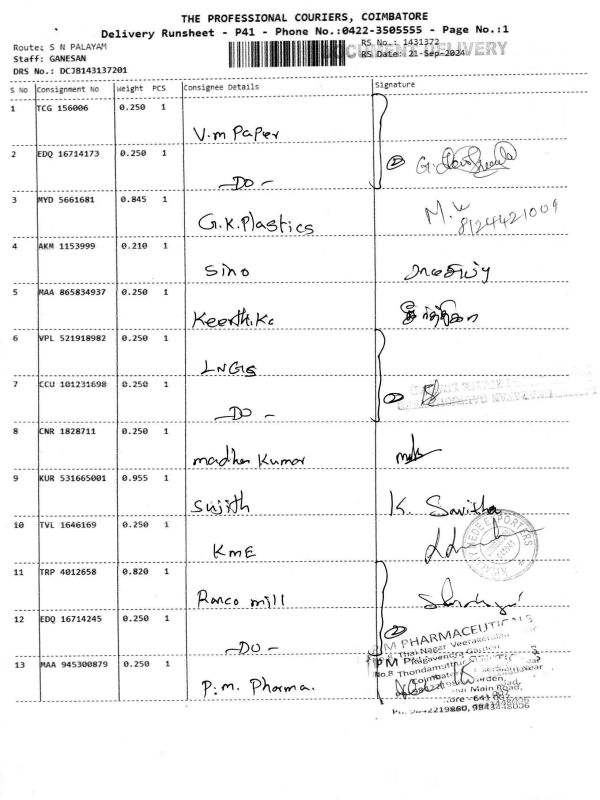 THE PROFESSIONAL COURIERS, COIMBATORE
Delivery Runsheet - P41 - Phone No.:0422-3505555 - Page No.:1
DOCUMENT DELIVERY
Route: S N PALAYAM
RS No.: 1431372
Staff: GANESAN
RS Date: 21-Sep-2024
DRS No.: DCJB143137201
S No Consignment No Weight PCS Consignee Details Signature
1 TCG 156006 0.250 1
V.m Paper
2 EDQ 16714173 0.250 1
-DO- 2 G.
3 MYD 5661681 0.845 1
G.K.Plastics M.K
8124421009
4 AKM 1153999 0.210 1
Sino
5 MAA 865834937 0.250 1
Keerthi.Kc
6 VPL 521918982 0.250 1
LNGS
7 CCU 101231698 0.250 1
-DO- 2
8 CNR 1828711 0.250 1
madhan Kumar
9 KUR 531665001 0.955 1
Sujith K. Savitha
10 TVL 1646169 0.250 1
KME
11 TRP 4012658 0.820 1
Ranco mill
12 EDQ 16714245 0.250 1
-DO- 2
P M PHARMACEUTICALS
13 MAA 945300879 0.250 1
P.m. Pharma.
Main Road,